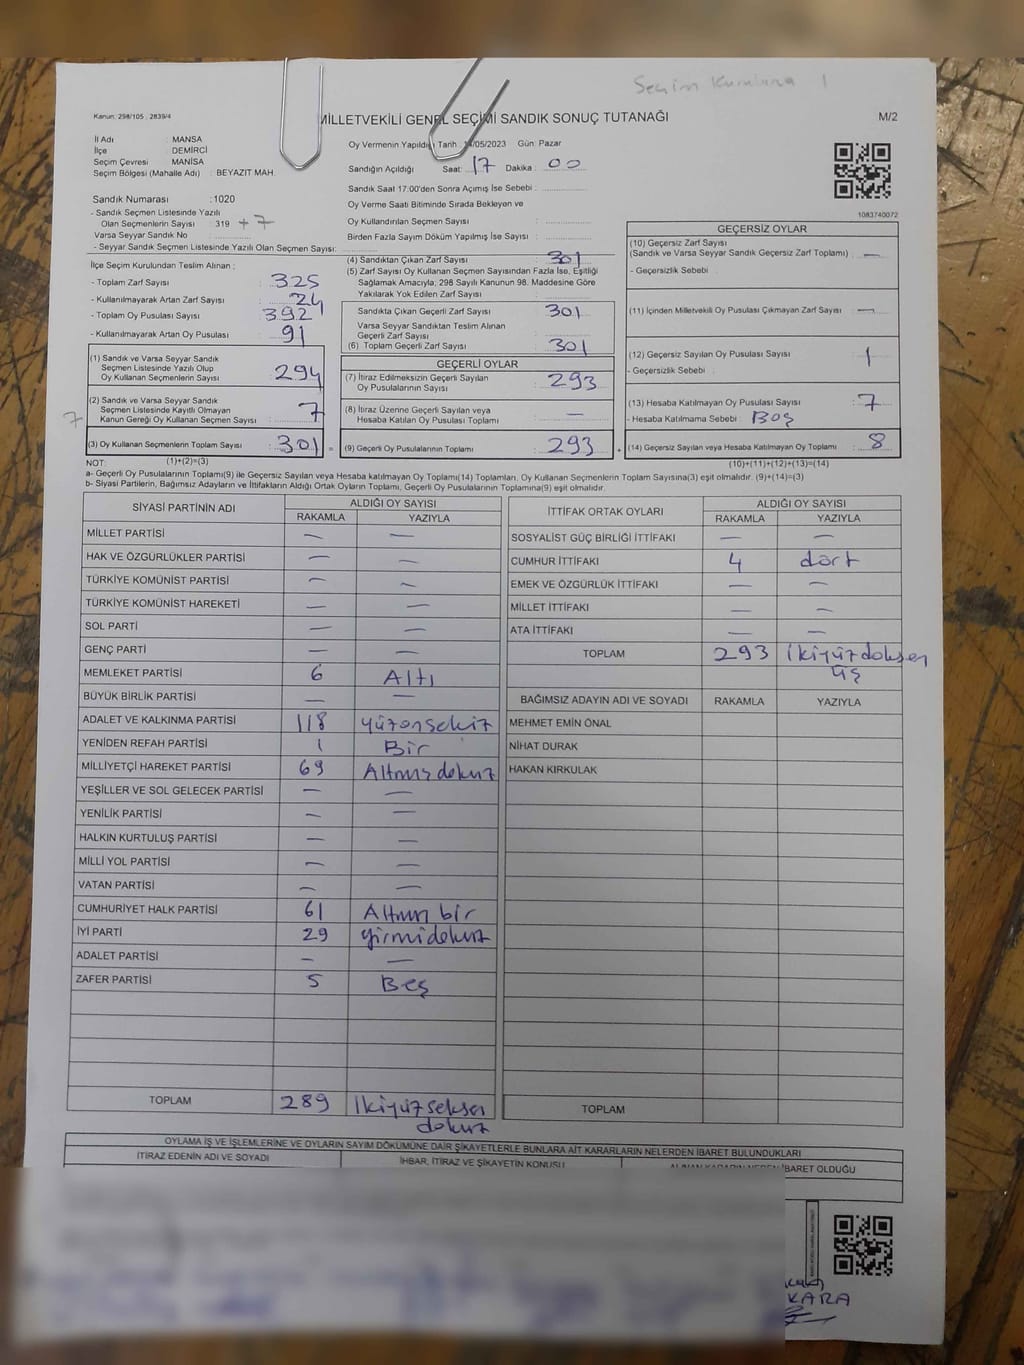 Seçim Kuruluna 1
Kanun: 298/105 , 2839/4
MİLLETVEKİLİ GENEL SEÇİMİ SANDIK SONUÇ TUTANAĞI
M/2
İl Adı : MANSA
İlçe : DEMİRCİ
Seçim Çevresi : MANİSA
Seçim Bölgesi (Mahalle Adı) : BEYAZIT MAH.
Sandık Numarası :1020
- Sandık Seçmen Listesinde Yazılı
Olan Seçmenlerin Sayısı : 319 + 7
Varsa Seyyar Sandık No :
- Seyyar Sandık Seçmen Listesinde Yazılı Olan Seçmen Sayısı:
Oy Vermenin Yapıldığı Tarih : 14/05/2023 Gün: Pazar
Sandığın Açıldığı Saat: 17 Dakika : 00
Sandık Saat 17:00'den Sonra Açımış İse Sebebi :
Oy Verme Saati Bitiminde Sırada Bekleyen ve
Oy Kullandırılan Seçmen Sayısı :
Birden Fazla Sayım Döküm Yapılmış İse Sayısı :
1083740072
İlçe Seçim Kurulundan Teslim Alınan ;
- Toplam Zarf Sayısı : 325
- Kullanılmayarak Artan Zarf Sayısı : 24
- Toplam Oy Pusulası Sayısı : 392
- Kullanılmayarak Artan Oy Pusulası : 91
(1) Sandık ve Varsa Seyyar Sandık
Seçmen Listesinde Yazılı Olup
Oy Kullanan Seçmenlerin Sayısı : 294
(2) Sandık ve Varsa Seyyar Sandık
Seçmen Listesinde Kayıtlı Olmayan
Kanun Gereği Oy Kullanan Seçmen Sayısı : 7
7
(3) Oy Kullanan Seçmenlerin Toplam Sayısı : 301 =
(1)+(2)=(3)
(4) Sandıktan Çıkan Zarf Sayısı : 301
(5) Zarf Sayısı Oy Kullanan Seçmen Sayısından Fazla İse, Eşitliği
Sağlamak Amacıyla; 298 Sayılı Kanunun 98. Maddesine Göre
Yakılarak Yok Edilen Zarf Sayısı :
Sandıkta Çıkan Geçerli Zarf Sayısı : 301
Varsa Seyyar Sandıktan Teslim Alınan
Geçerli Zarf Sayısı :
(6) Toplam Geçerli Zarf Sayısı : 301
GEÇERLİ OYLAR
(7) İtiraz Edilmeksizin Geçerli Sayılan
Oy Pusulalarının Sayısı : 293
(8) İtiraz Üzerine Geçerli Sayılan veya
Hesaba Katılan Oy Pusulası Toplamı : —
(9) Geçerli Oy Pusulalarının Toplamı : 293 +
GEÇERSİZ OYLAR
(10) Geçersiz Zarf Sayısı
(Sandık ve Varsa Seyyar Sandık Geçersiz Zarf Toplamı) : —
- Geçersizlik Sebebi :
(11) İçinden Milletvekili Oy Pusulası Çıkmayan Zarf Sayısı : —
(12) Geçersiz Sayılan Oy Pusulası Sayısı : 1
- Geçersizlik Sebebi :
(13) Hesaba Katılmayan Oy Pusulası Sayısı : 7
- Hesaba Katılmama Sebebi : Boş
(14) Geçersiz Sayılan veya Hesaba Katılmayan Oy Toplamı : 8
(10)+(11)+(12)+(13)=(14)
NOT:
a- Geçerli Oy Pusulalarının Toplamı(9) ile Geçersiz Sayılan veya Hesaba katılmayan Oy Toplamı(14) Toplamları, Oy Kullanan Seçmenlerin Toplam Sayısına(3) eşit olmalıdır. (9)+(14)=(3)
b- Siyasi Partilerin, Bağımsız Adayların ve İttifakların Aldığı Ortak Oyların Toplamı, Geçerli Oy Pusulalarının Toplamına(9) eşit olmalıdır.
SİYASİ PARTİNİN ADI ALDIĞI OY SAYISI
RAKAMLA YAZIYLA
MİLLET PARTİSİ — —
HAK VE ÖZGÜRLÜKLER PARTİSİ — —
TÜRKİYE KOMÜNİST PARTİSİ — —
TÜRKİYE KOMÜNİST HAREKETİ — —
SOL PARTİ — —
GENÇ PARTİ — —
MEMLEKET PARTİSİ 6 Altı
BÜYÜK BİRLİK PARTİSİ — —
ADALET VE KALKINMA PARTİSİ 118 yüzonsekiz
YENİDEN REFAH PARTİSİ 1 Bir
MİLLİYETÇİ HAREKET PARTİSİ 69 Altmış dokuz
YEŞİLLER VE SOL GELECEK PARTİSİ — —
YENİLİK PARTİSİ — —
HALKIN KURTULUŞ PARTİSİ — —
MİLLİ YOL PARTİSİ — —
VATAN PARTİSİ — —
CUMHURİYET HALK PARTİSİ 61 Altmış bir
İYİ PARTİ 29 yirmidokuz
ADALET PARTİSİ — —
ZAFER PARTİSİ 5 Beş
TOPLAM 289 İkiyüzseksen
dokuz
İTTİFAK ORTAK OYLARI ALDIĞI OY SAYISI
RAKAMLA YAZIYLA
SOSYALİST GÜÇ BİRLİĞİ İTTİFAKI — —
CUMHUR İTTİFAKI 4 dört
EMEK VE ÖZGÜRLÜK İTTİFAKI — —
MİLLET İTTİFAKI — —
ATA İTTİFAKI — —
TOPLAM 293 ikiyüzdoksen
üş
BAĞIMSIZ ADAYIN ADI VE SOYADI RAKAMLA YAZIYLA
MEHMET EMİN ÖNAL
NİHAT DURAK
HAKAN KIRKULAK
TOPLAM
OYLAMA İŞ VE İŞLEMLERİNE VE OYLARIN SAYIM DÖKÜMÜNE DAİR ŞİKAYETLERLE BUNLARA AİT KARARLARIN NELERDEN İBARET BULUNDUKLARI
İTİRAZ EDENİN ADI VE SOYADI İHBAR, İTİRAZ VE ŞİKAYETİN KONUSU ALINAN KARARIN NEDEN İBARET OLDUĞU
KARA